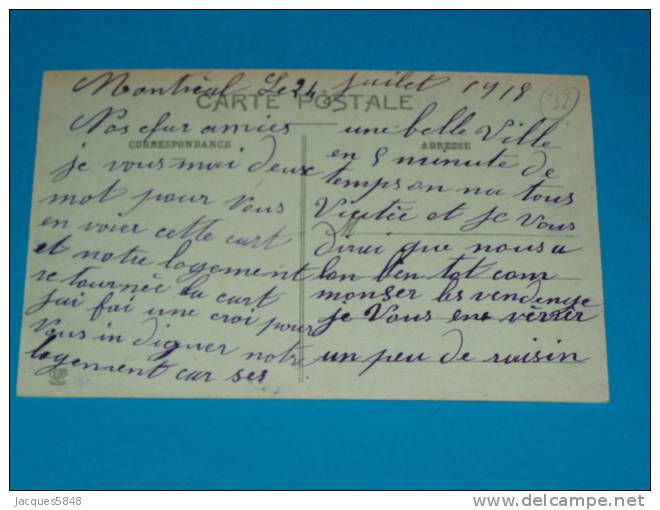 Montréal Le 24 Juilet 1918
32
CARTE POSTALE
CORRESPONDANCE
Nos cher amies
je vous mai deux
mot pour vous
en voier cette cart
et notre logement
retournée la cart
jai fai une croi pour
vous in diquer notre
logement car ses
ADRESSE
une belle Ville
en 5 minute de
temps on na tous
Visitée et je Vous
dirai que nous a
lon bien tot com
monser les vendenge
je Vous en vèrrer
un peu de raisin
Jacques5848
delcampe.net